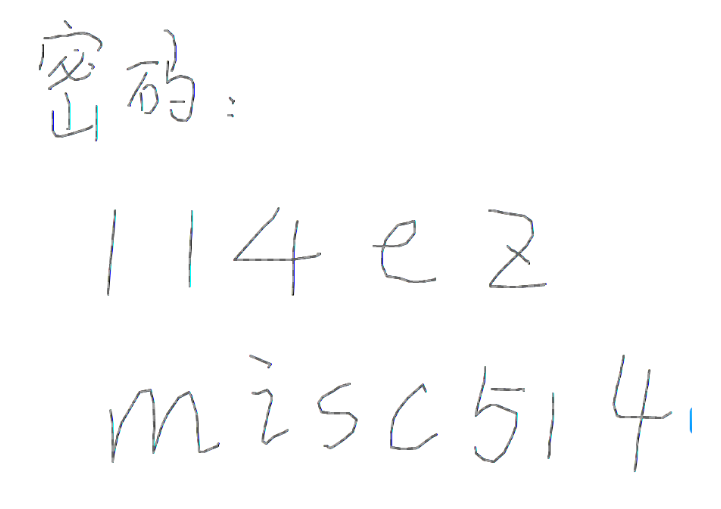 密码:
114ez
misc514